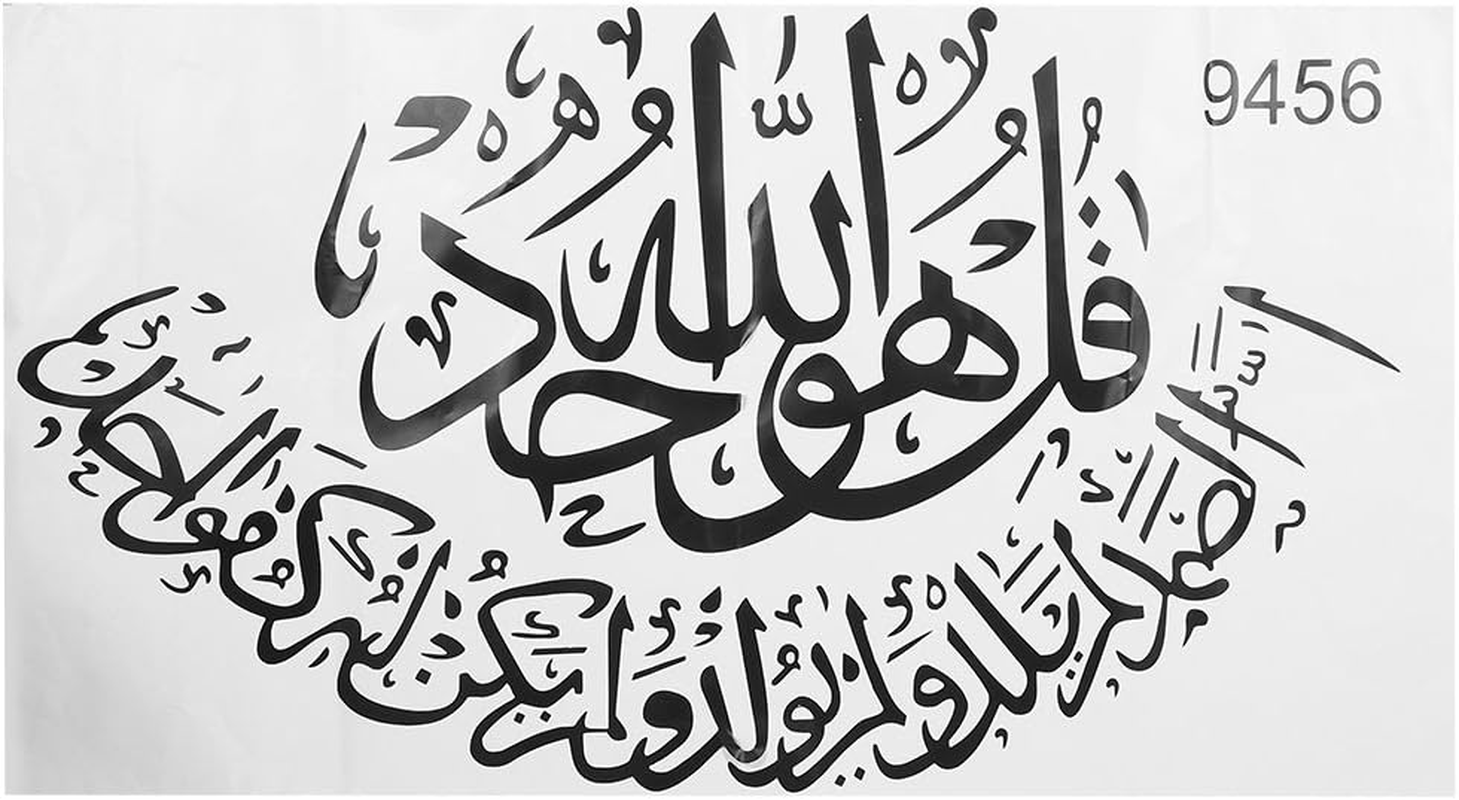 9456
قُلْ هُوَ اللَّهُ أَحَدٌ
اللَّهُ الصَّمَدُ لَمْ يَلِدْ وَلَمْ يُولَدْ وَلَمْ يَكُنْ لَهُ كُفُوًا أَحَدٌ